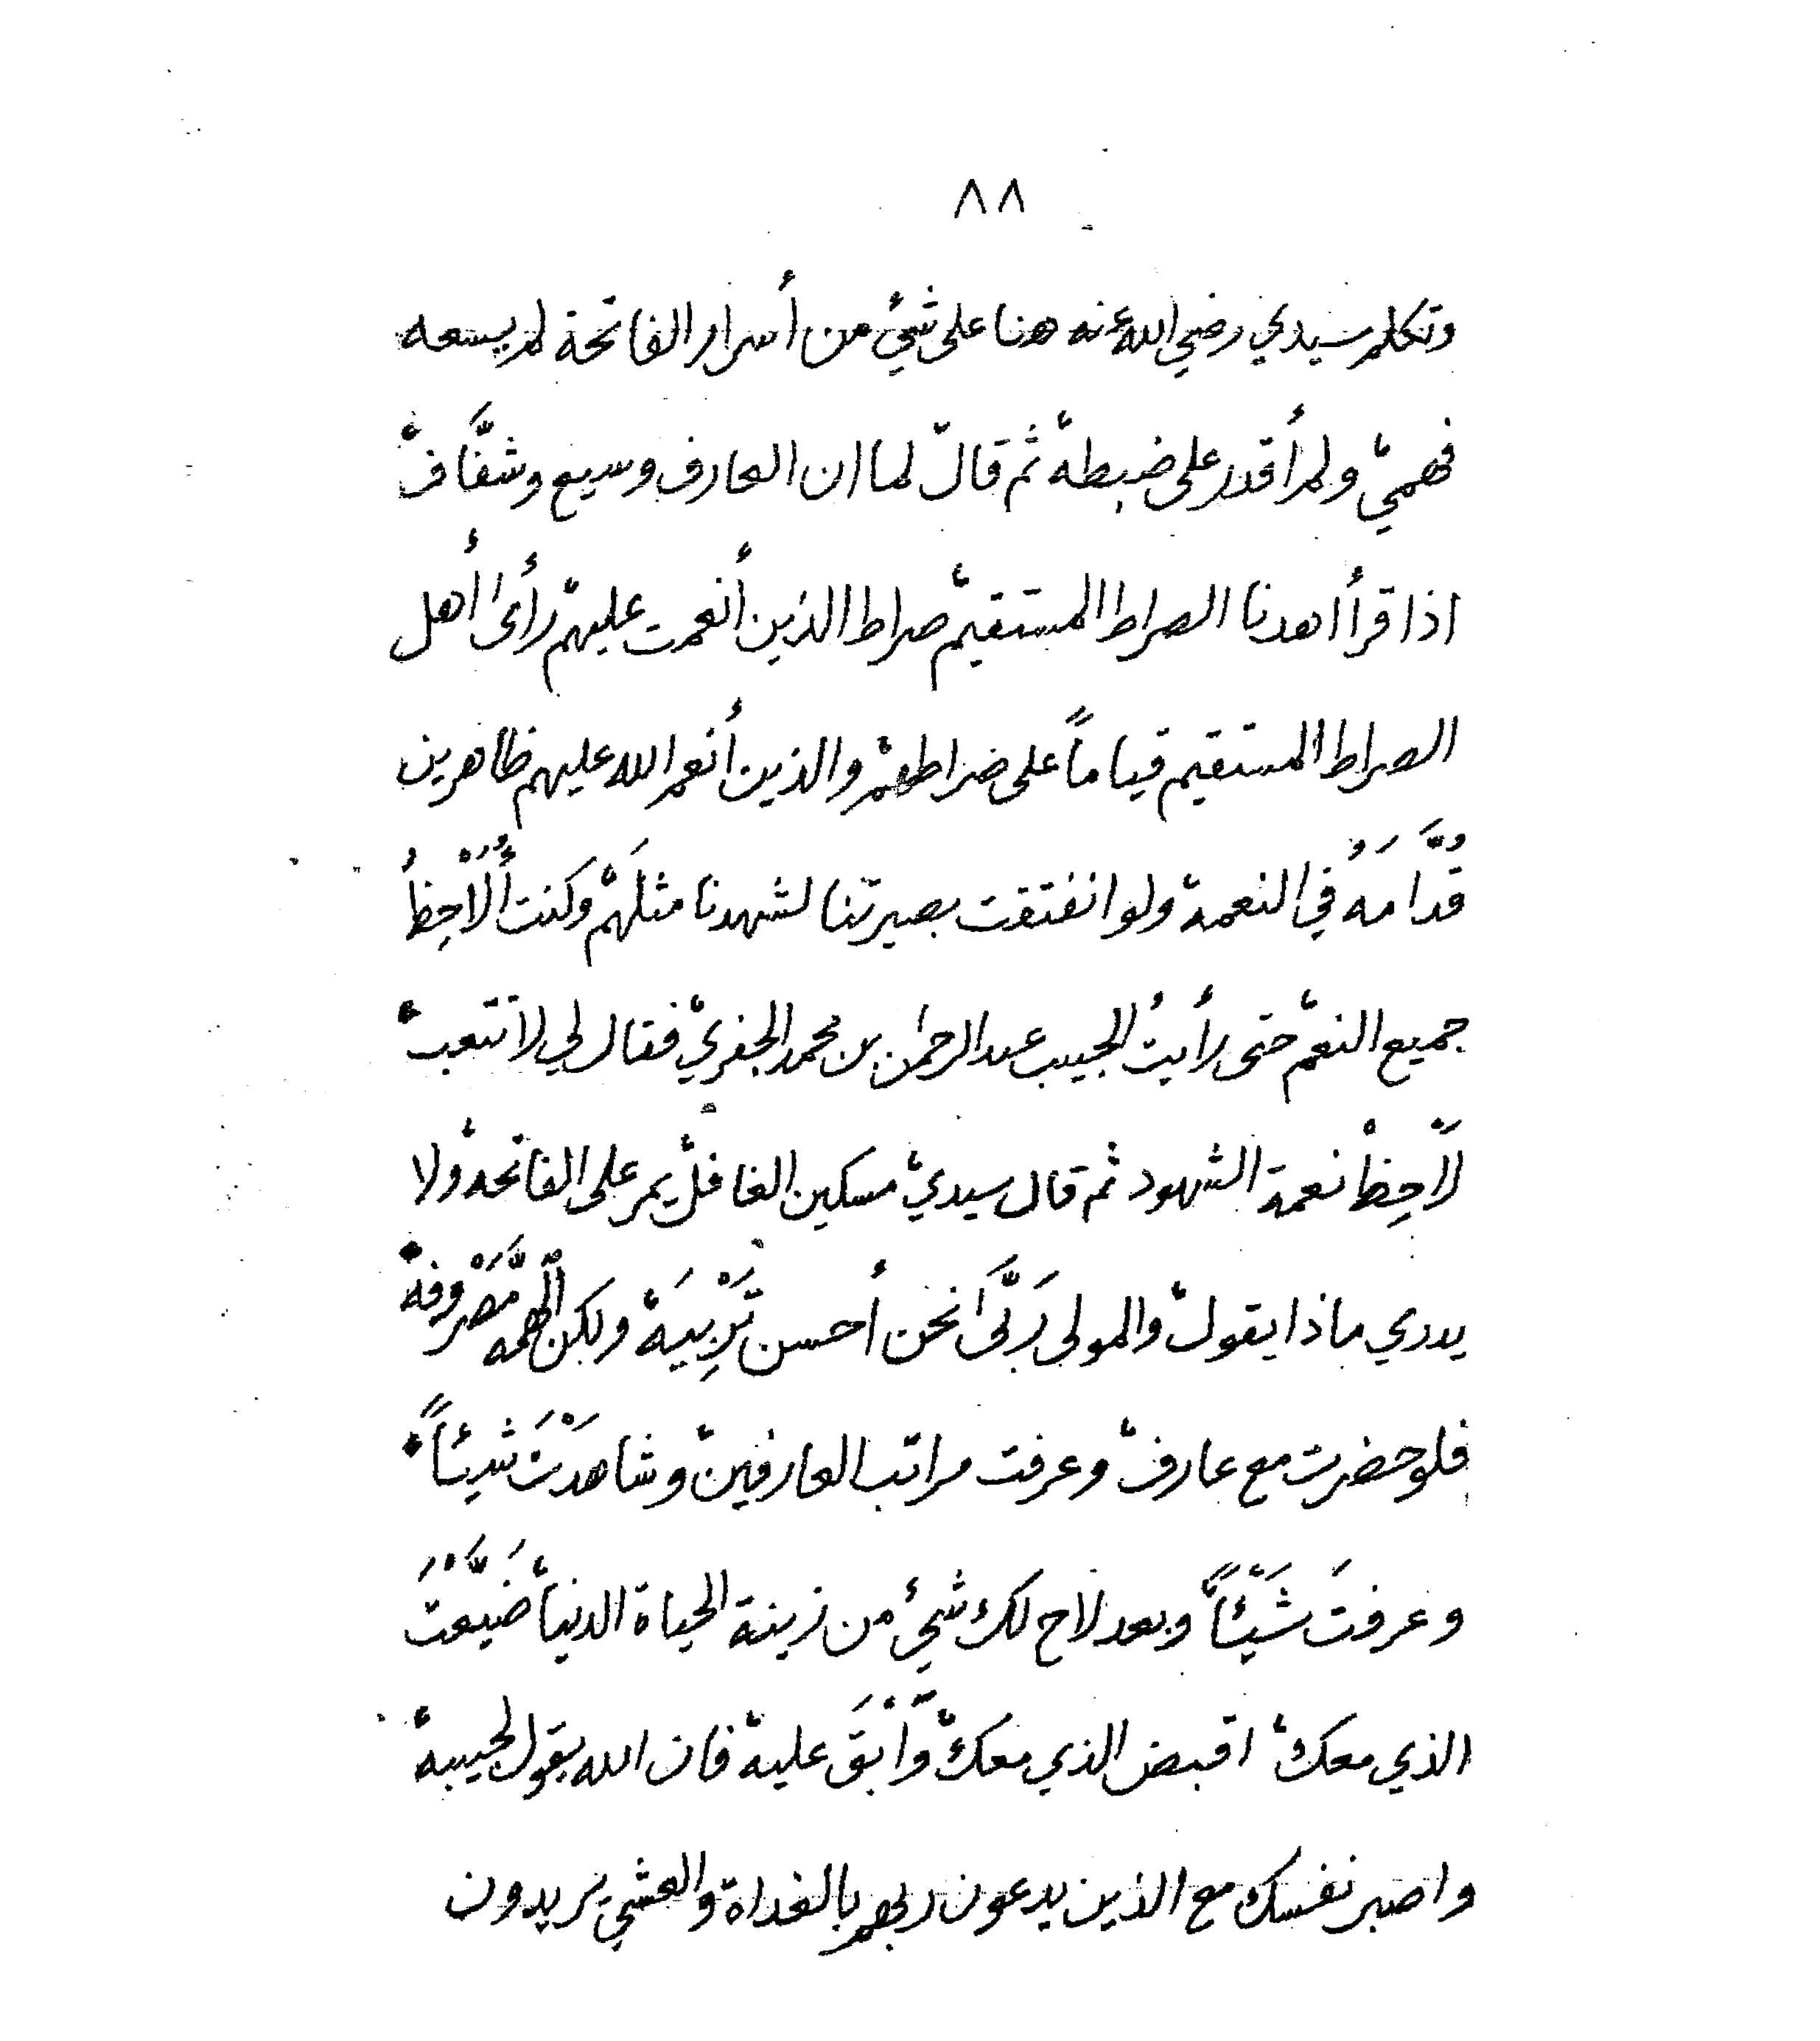 ٨٨
وتكلم سيدي رضي الله عنه هنا على شئ من أسرار الفاتحة لم يسعه
فهمي، ولم أقدر على ضبطه، ثم قال، لما ان العارف وسيع وشفَّاف،
اذا قرأ اهدنا الصراط المستقيم، صراط الذين أنعمت عليهم، رأى أهل
الصراط المستقيم قياماً على صراطهم، والذين أنعم الله عليهم ظاهرين
قُدَّامَهُ في النعمة، ولو انفتقت بصيرتنا لشهدنا مثلَهم، وكنت أُلَاحِظُ
جميع النعم، حتى رأيتُ الحبيب عبد الرحمٰن بن محمد الجفري، فقال لي لا تتعب،
لَاحِظْ نعمة الشهود، ثم قال سيدي، مسكين الغافل، يمر على الفاتحة، ولا
يدري ماذا يقول، والمولى رَبَّىٰ نحن أحسن تَرْبِيَة، ولكن الهِمَّه مَصْروفه،
فلو حضرت مع عارف، وعرفت مراتب العارفين، وشاهَدْتَ شيئاً،
وعرفتَ شَيْئاً، وبعد لاح لك شئ من زينة الحياة الدنيا، ضَيَّعْتَ
الذي معك، اقبض الذي معك، وَٱبْقَ عليه، فان الله يقول لحبيبه،
واصبر نفسك مع الذين يدعون ربهم بالغداة والعشي يريدون